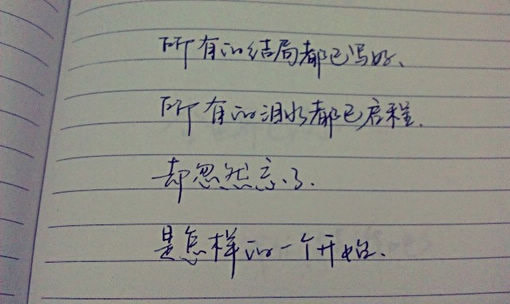 所有的结局都已写好、
所有的泪水都已启程.
却忽然忘了.
是怎样的一个开始.